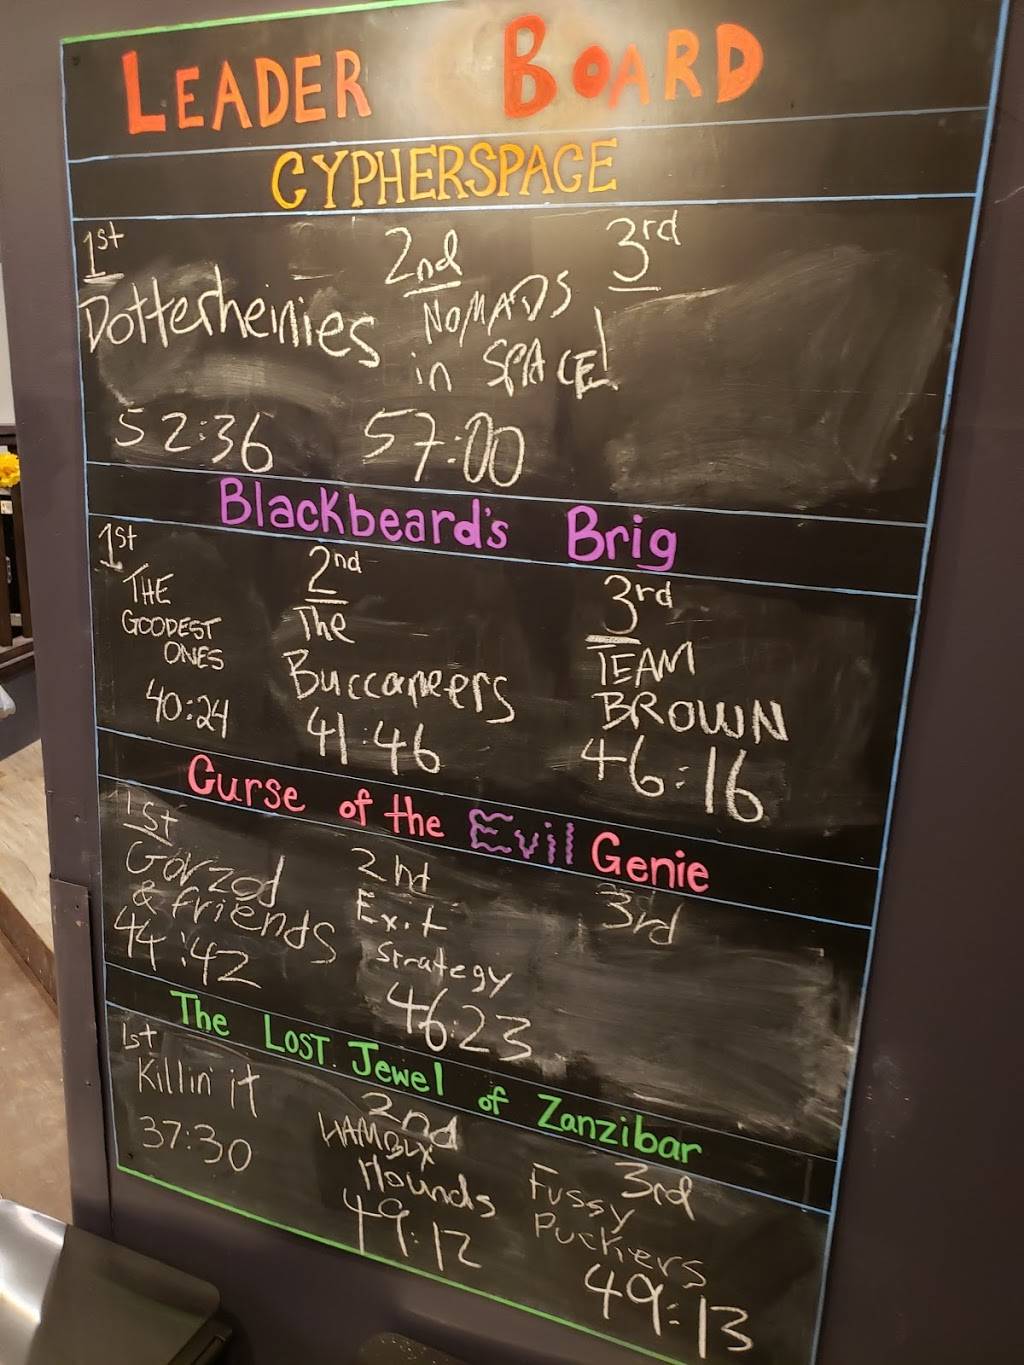 LEADER BOARD
CYPHERSPACE
1st 2nd 3rd
Dotterheinies NOMADS
in SPACE!
52:36 57:00
Blackbeard's Brig
1st 2nd 3rd
THE The TEAM
GOODEST Buccaneers BROWN
ONES
40:24 41:46 46:16
Curse of the Evil Genie
1st 2nd 3rd
Gorzod Exit
& friends Strategy
44:42 46:23
The Lost Jewel of Zanzibar
1st 2nd 3rd
Killin' it Fussy
Hounds Puckers
37:30 49:12 49:13